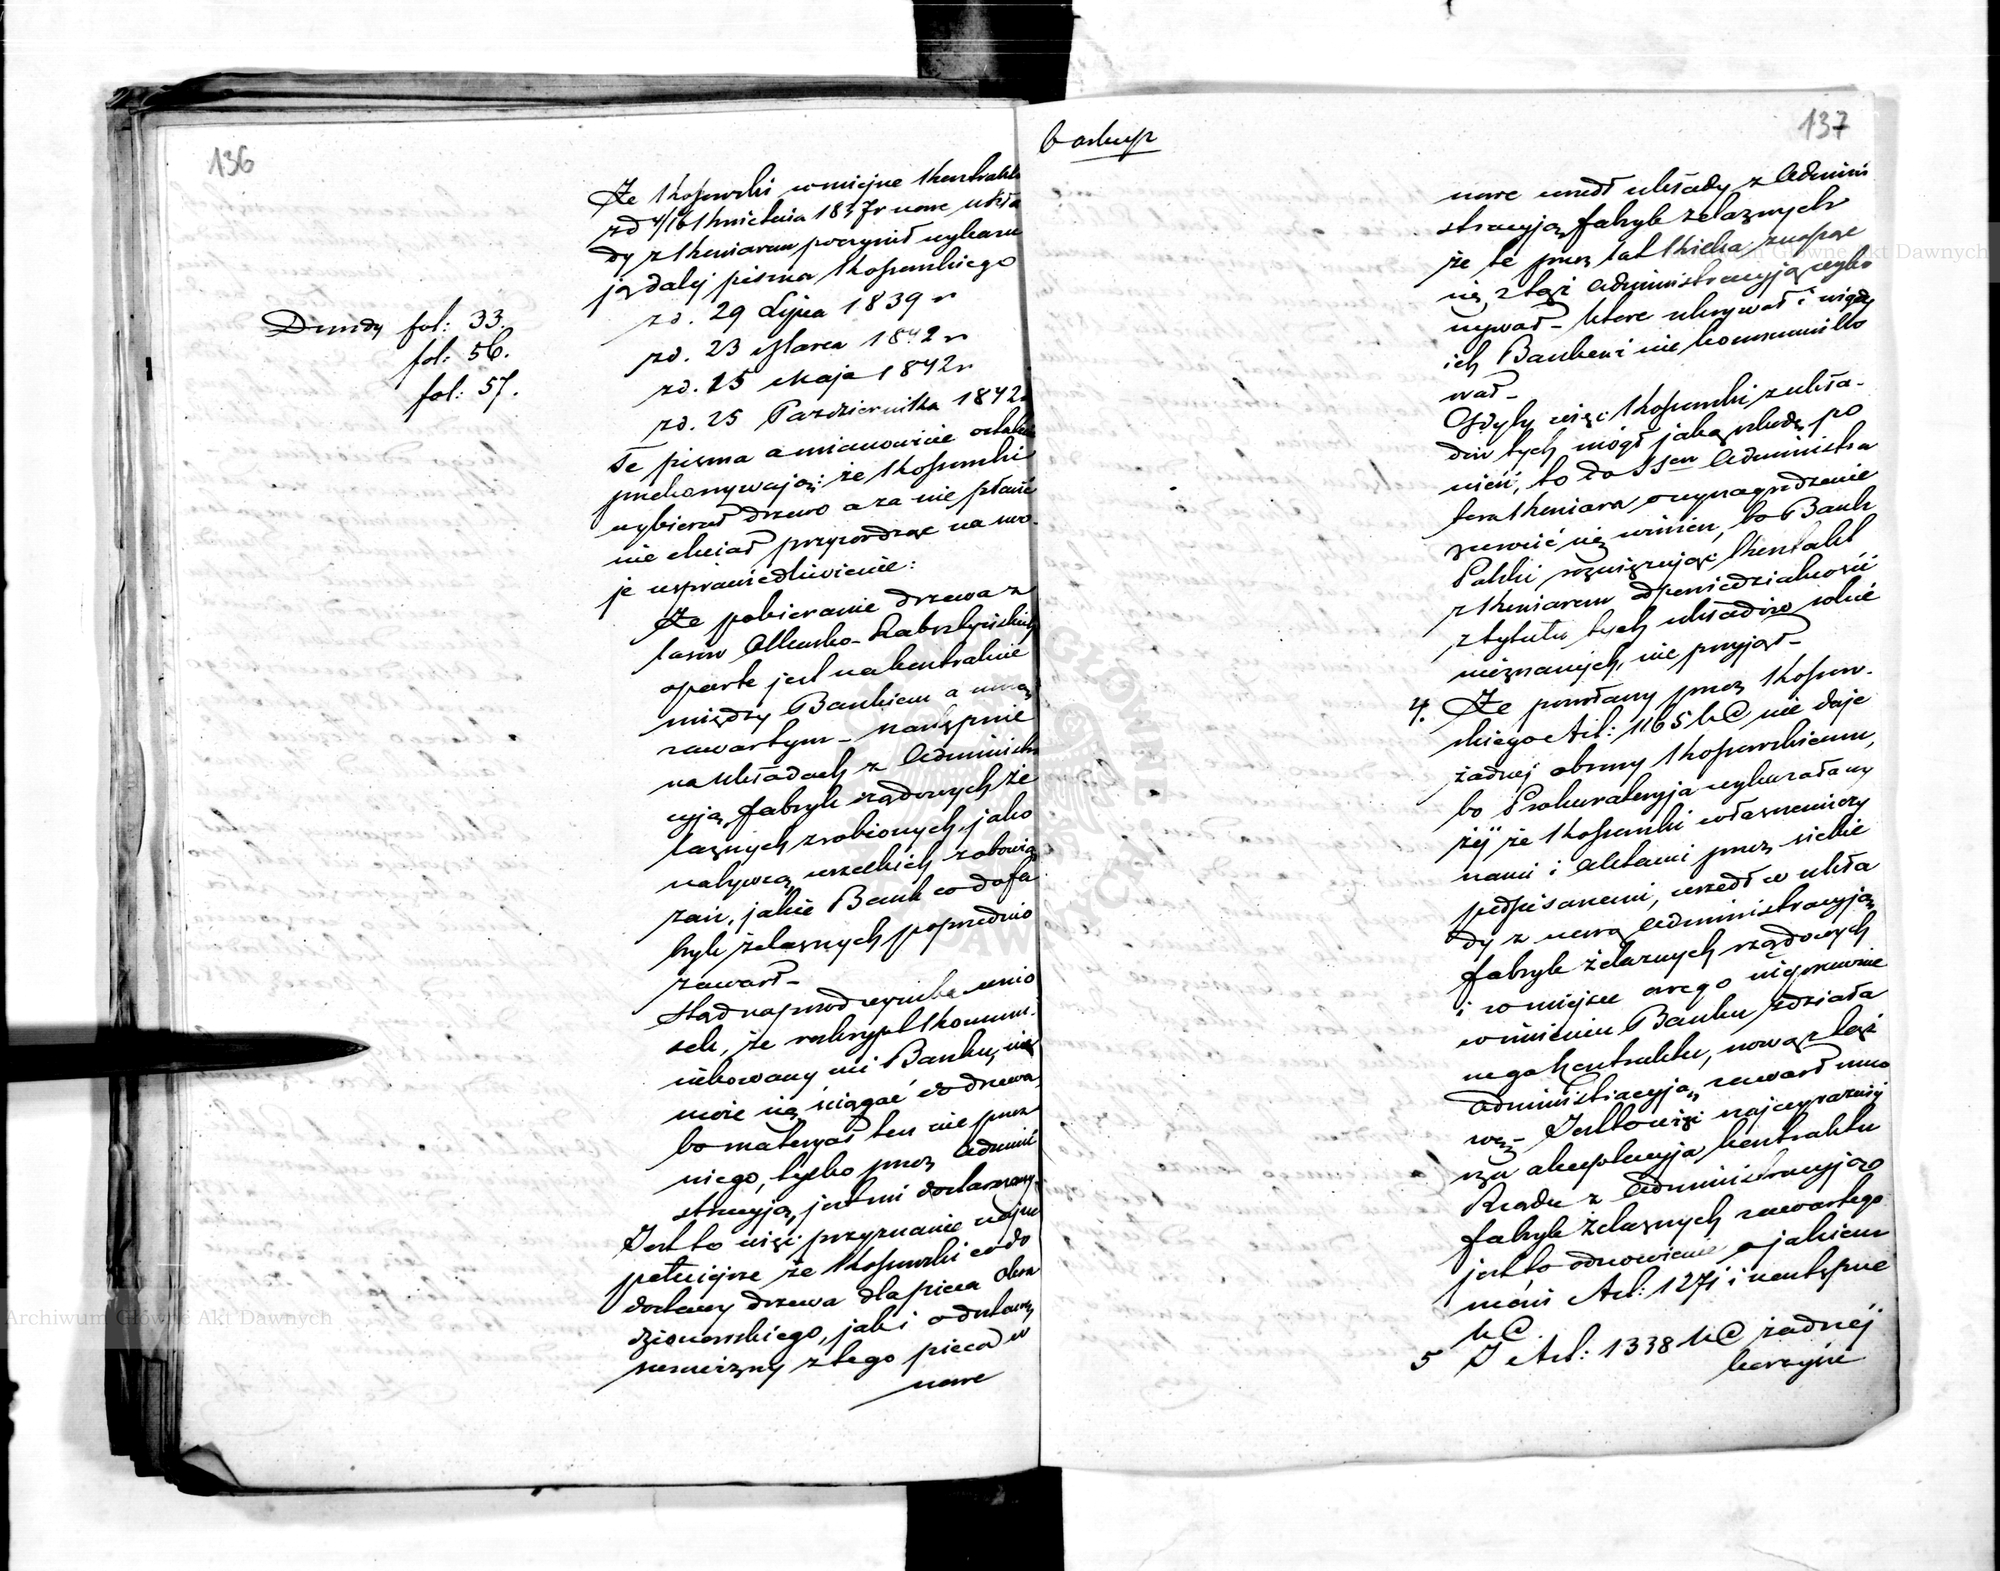 136
Dowody fol: 33.
fol: 56.
fol: 57.
Że Kossowski w miejsce Kontraktu
z d 4/16 Kwietnia 1837 r nowe ukła
dy z Koniarem poczynił wykazu
ją dalej pisma Kossowskiego
z d. 29 Lipca 1839 r
z d. 23 Marca 1842 r
z d. 15 Maja 1842 r
z d. 25 Października 1842
Te pisma a mianowicie ostatnie
przekonywają: że Kossowski
wybierał drzewo a za nie płacić
nie chciał przywodząc na swo
je usprawiedliwienie:
Że pobieranie drzewa z
lasów Olkusko-Rabsztyńskich
oparte jest na kontrakcie
między Bankiem a mną
zawartym – następnie
na układach z Administra
cyją fabryk rządowych że
laznych zrobionych, jako
nabywcą wszelkich zobowią
zań, jakie Bank co do fa
bryk żelaznych poprzednio
zawarł –
Stąd naprzód wynika wnio
sek, że reskrypt komuni
kowany mi Banku, nie
może się ściągać do drzewa
bo materyał ten nie przez
niego, tylko przez Admini
stracyją, jest mi dostarczany.
Jest to więc przyznanie najzu
pełniejsze że Kossowski co do
dostawy drzewa dla pieca
dzionowskiego, jak i odstawy
surowizny z tego pieca w
nowe
137
6 arkusz
nowe wszedł układy z Admini
stracyją fabryk żelaznych
że te przez lat kilka znosząc
się z tąż Administracyją wyko
nywał – które ukrywał i nigdy
ich Bankowi nie kommuniko
wał –
Gdyby więc Kossowski z ukła-
dów tych mógł jaką szkodę po
nieść, to do SSów Administra
tora Koniara o wynagrodzenie
zwrócić się winien, bo Bank
Polski rozwiązując kontrakt
z Koniarem odpowiedzialności
z tytułu tych układów sobie
nieznanych, nie przyjął –
4. Że powołany przez Kossow-
skiego Art: 1165 K@ nie daje
żadnej obrony Kossowskiemu,
bo Prokuratoryja wykazała wy
żéj że Kossowski własnemi czy
nami i Aktami przez siebie
podpisanemi, wszedł w ukła
dy z nową Administracyją
fabryk żelaznych rządowych
i w miejsce owego niegdyś
w imieniu Banku zdziała
nego kontraktu, nową z tąż
Administracyją, zawarł umo
wę – Jest to więc najwyraźniej
sza akceptacyja kontraktu
Rządu z Administracyją
fabryk żelaznych zawartego
jest to odnowienie o jakiem
mówi Art: 1271 i następne
K@
5 I Art: 1338 K@ żadnéj
korzyści
Archiwum Główne Akt Dawnych
Archiwum Główne Akt Dawnych